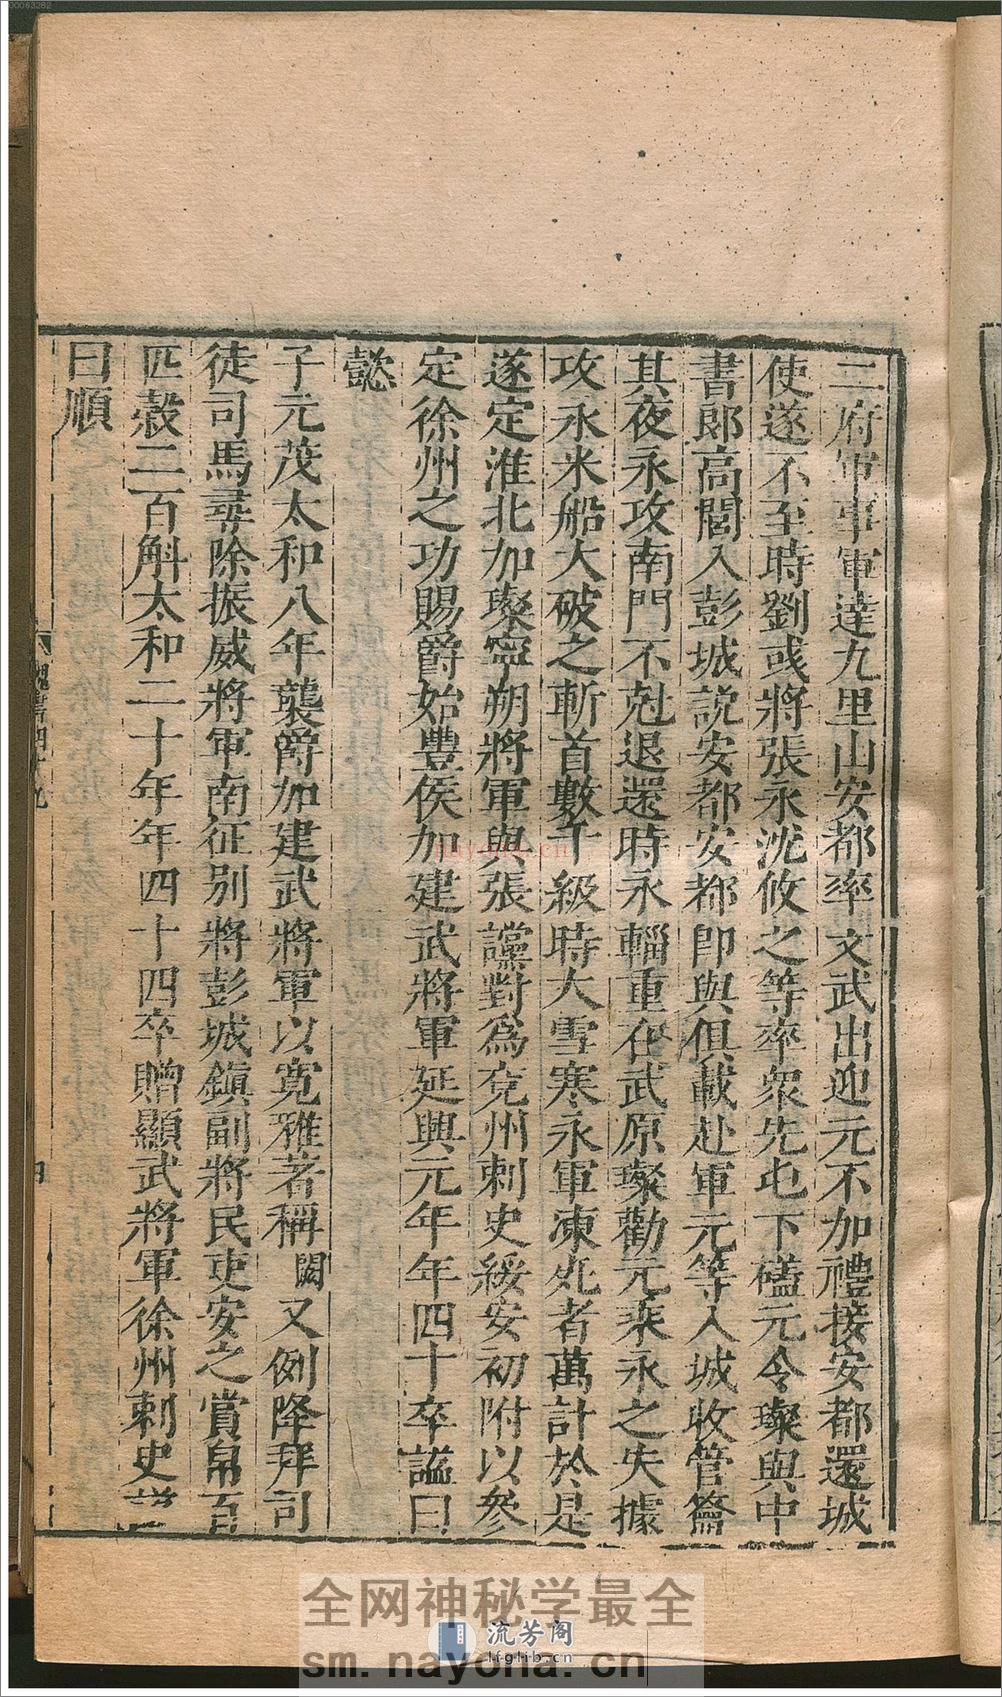 二府軍事軍達九里山安都率文武出迎元不加禮接安都還城
使遂不至時劉彧將張永沈攸之等率衆先屯下磕元令璨與中
書郎高閭入彭城說安都安都卽與俱載赴軍元等入城收管籥
其夜永攻南門不尅退還時永輜重在武原璨勸元乘永之失據
攻永米船大破之斬首數千級時大雪寒永軍凍死者萬計於是
遂定淮北加璨寧朔將軍與張讜對爲兗州刺史綏安初附以參
定徐州之功賜爵始豐侯加建武將軍延興元年年四十卒謚曰
懿
子元茂太和八年襲爵加建武將軍以寬雅著稱闕又例降拜司
徒司馬尋除振威將軍南征別將彭城鎮副將民吏安之賞帛百
匹穀二百斛太和二十年年四十四卒贈顯武將軍徐州刺史
曰順
魏書四十九
四
00063282
nayona.cn
全网神秘学最全
流芳阁
lfglib.cn
sm.nayona.cn